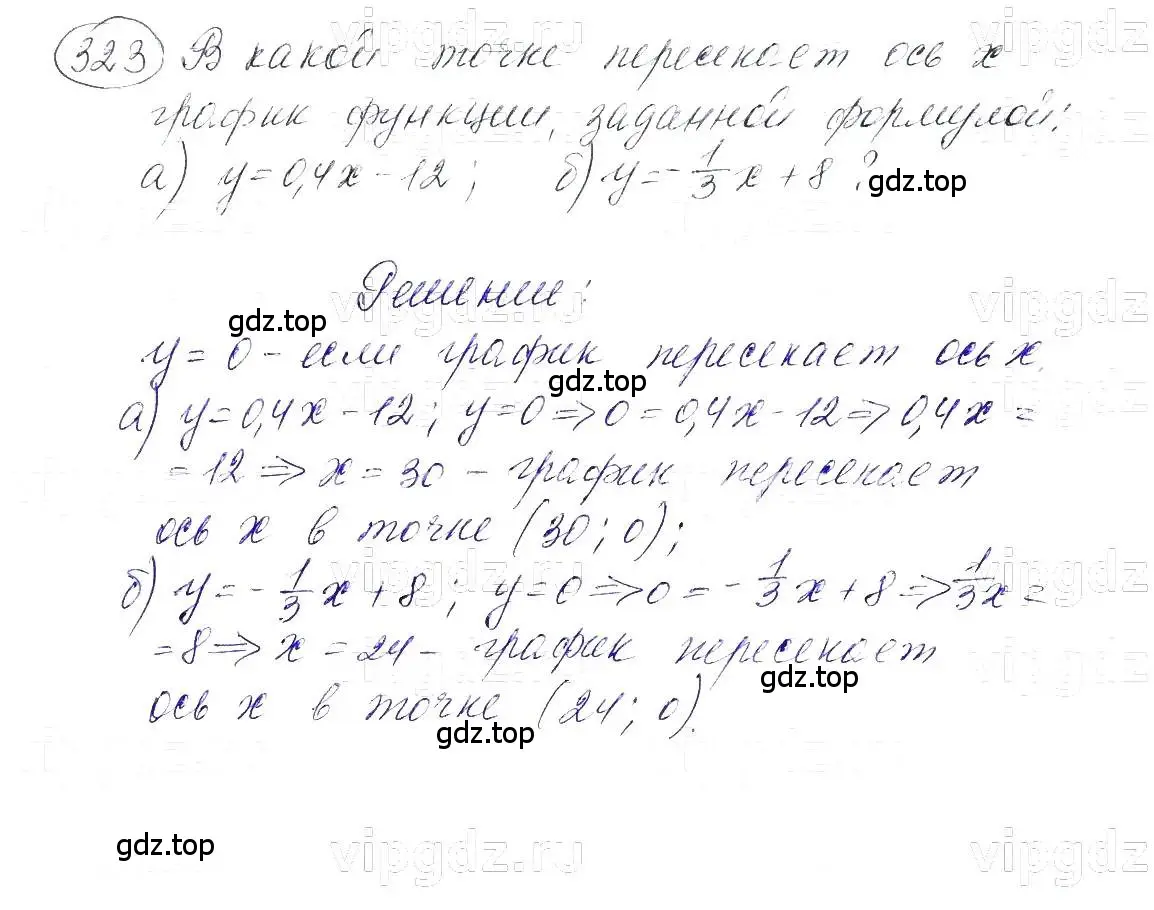 323 В какой точке пересекает ось x
график функции, заданной формулой:
а) y=0,4x-12; б) y=-1/3x+8?
gdz.top
Решение:
gdz.top
y=0 - если график пересекает ось x.
gdz.top
а) y=0,4x-12; y=0=>0=0,4x-12=>0,4x=
=12=>x=30 - график пересекает
ось x в точке (30; 0);
б) y=-1/3x+8; y=0=>0=-1/3x+8=>1/3x=
=8=>x=24 - график пересекает
gdz.top
ось x в точке (24; 0).
gdz.top
gdz.top
vipgdz.ru
vipgdz
vipgdz.ru
vipgdz
vipgdz.ru
vipgdz
vipgdz.ru
vipgdz